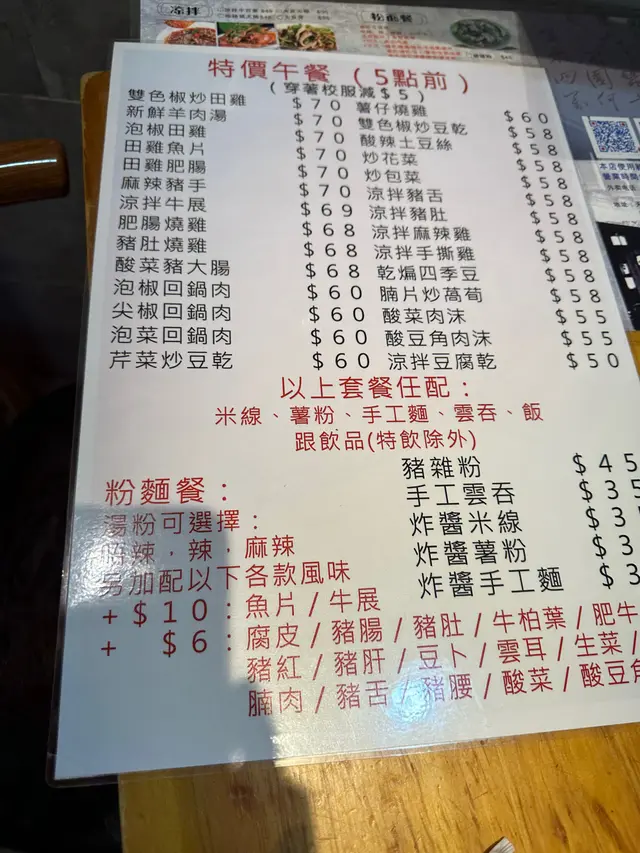 涼拌
特價午餐（5點前）
（穿著校服減$5）
雙色椒炒田雞 $70 薯仔燒雞 $60
新鮮羊肉湯 $70 雙色椒炒豆乾 $58
泡椒田雞 $70 酸辣土豆絲 $58
田雞魚片 $70 炒花菜 $58
田雞肥腸 $70 炒包菜 $58
麻辣豬手 $70 涼拌豬舌 $58
涼拌牛展 $69 涼拌豬肚 $58
肥腸燒雞 $68 涼拌麻辣雞 $58
豬肚燒雞 $68 涼拌手撕雞 $58
酸菜豬大腸 $68 乾煸四季豆 $58
泡椒回鍋肉 $60 腩片炒萵荀 $58
尖椒回鍋肉 $60 酸菜肉沫 $55
泡菜回鍋肉 $60 酸豆角肉沫 $55
芹菜炒豆乾 $60 涼拌豆腐乾 $50
以上套餐任配：
米線、薯粉、手工麵、雲吞、飯
跟飲品(特飲除外)
豬雜粉 $45
手工雲吞 $35
炸醬米線 $3
炸醬薯粉 $3
炸醬手工麵 $3
粉麵餐：
湯粉可選擇：
辣，辣，麻辣
另加配以下各款風味
+$10：魚片/牛展
+ $6：腐皮/豬腸/豬肚/牛柏葉/肥牛
豬紅/豬肝/豆卜/雲耳/生菜/
腩肉/豬舌/豬腰/酸菜/酸豆角